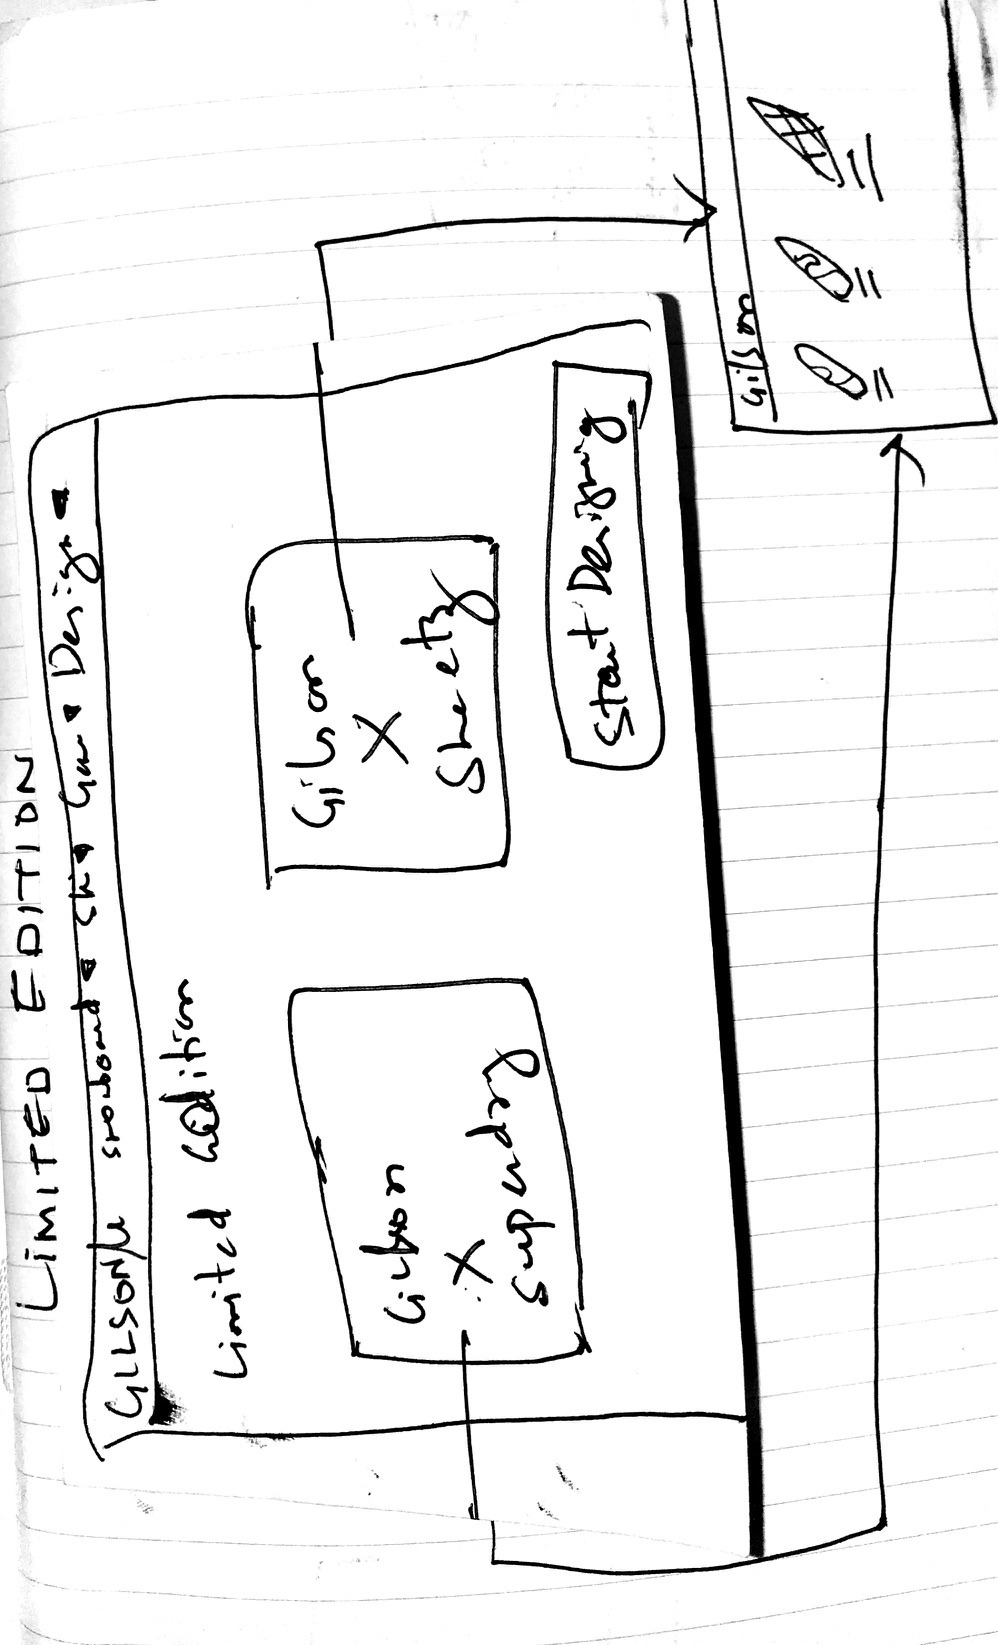 LIMITED EDITION
GILSON snowboard Ski Gear Design
Limited edition
Gilson
X
Superdry
Gilson
X
Sheetz
Start Designing
Gilson